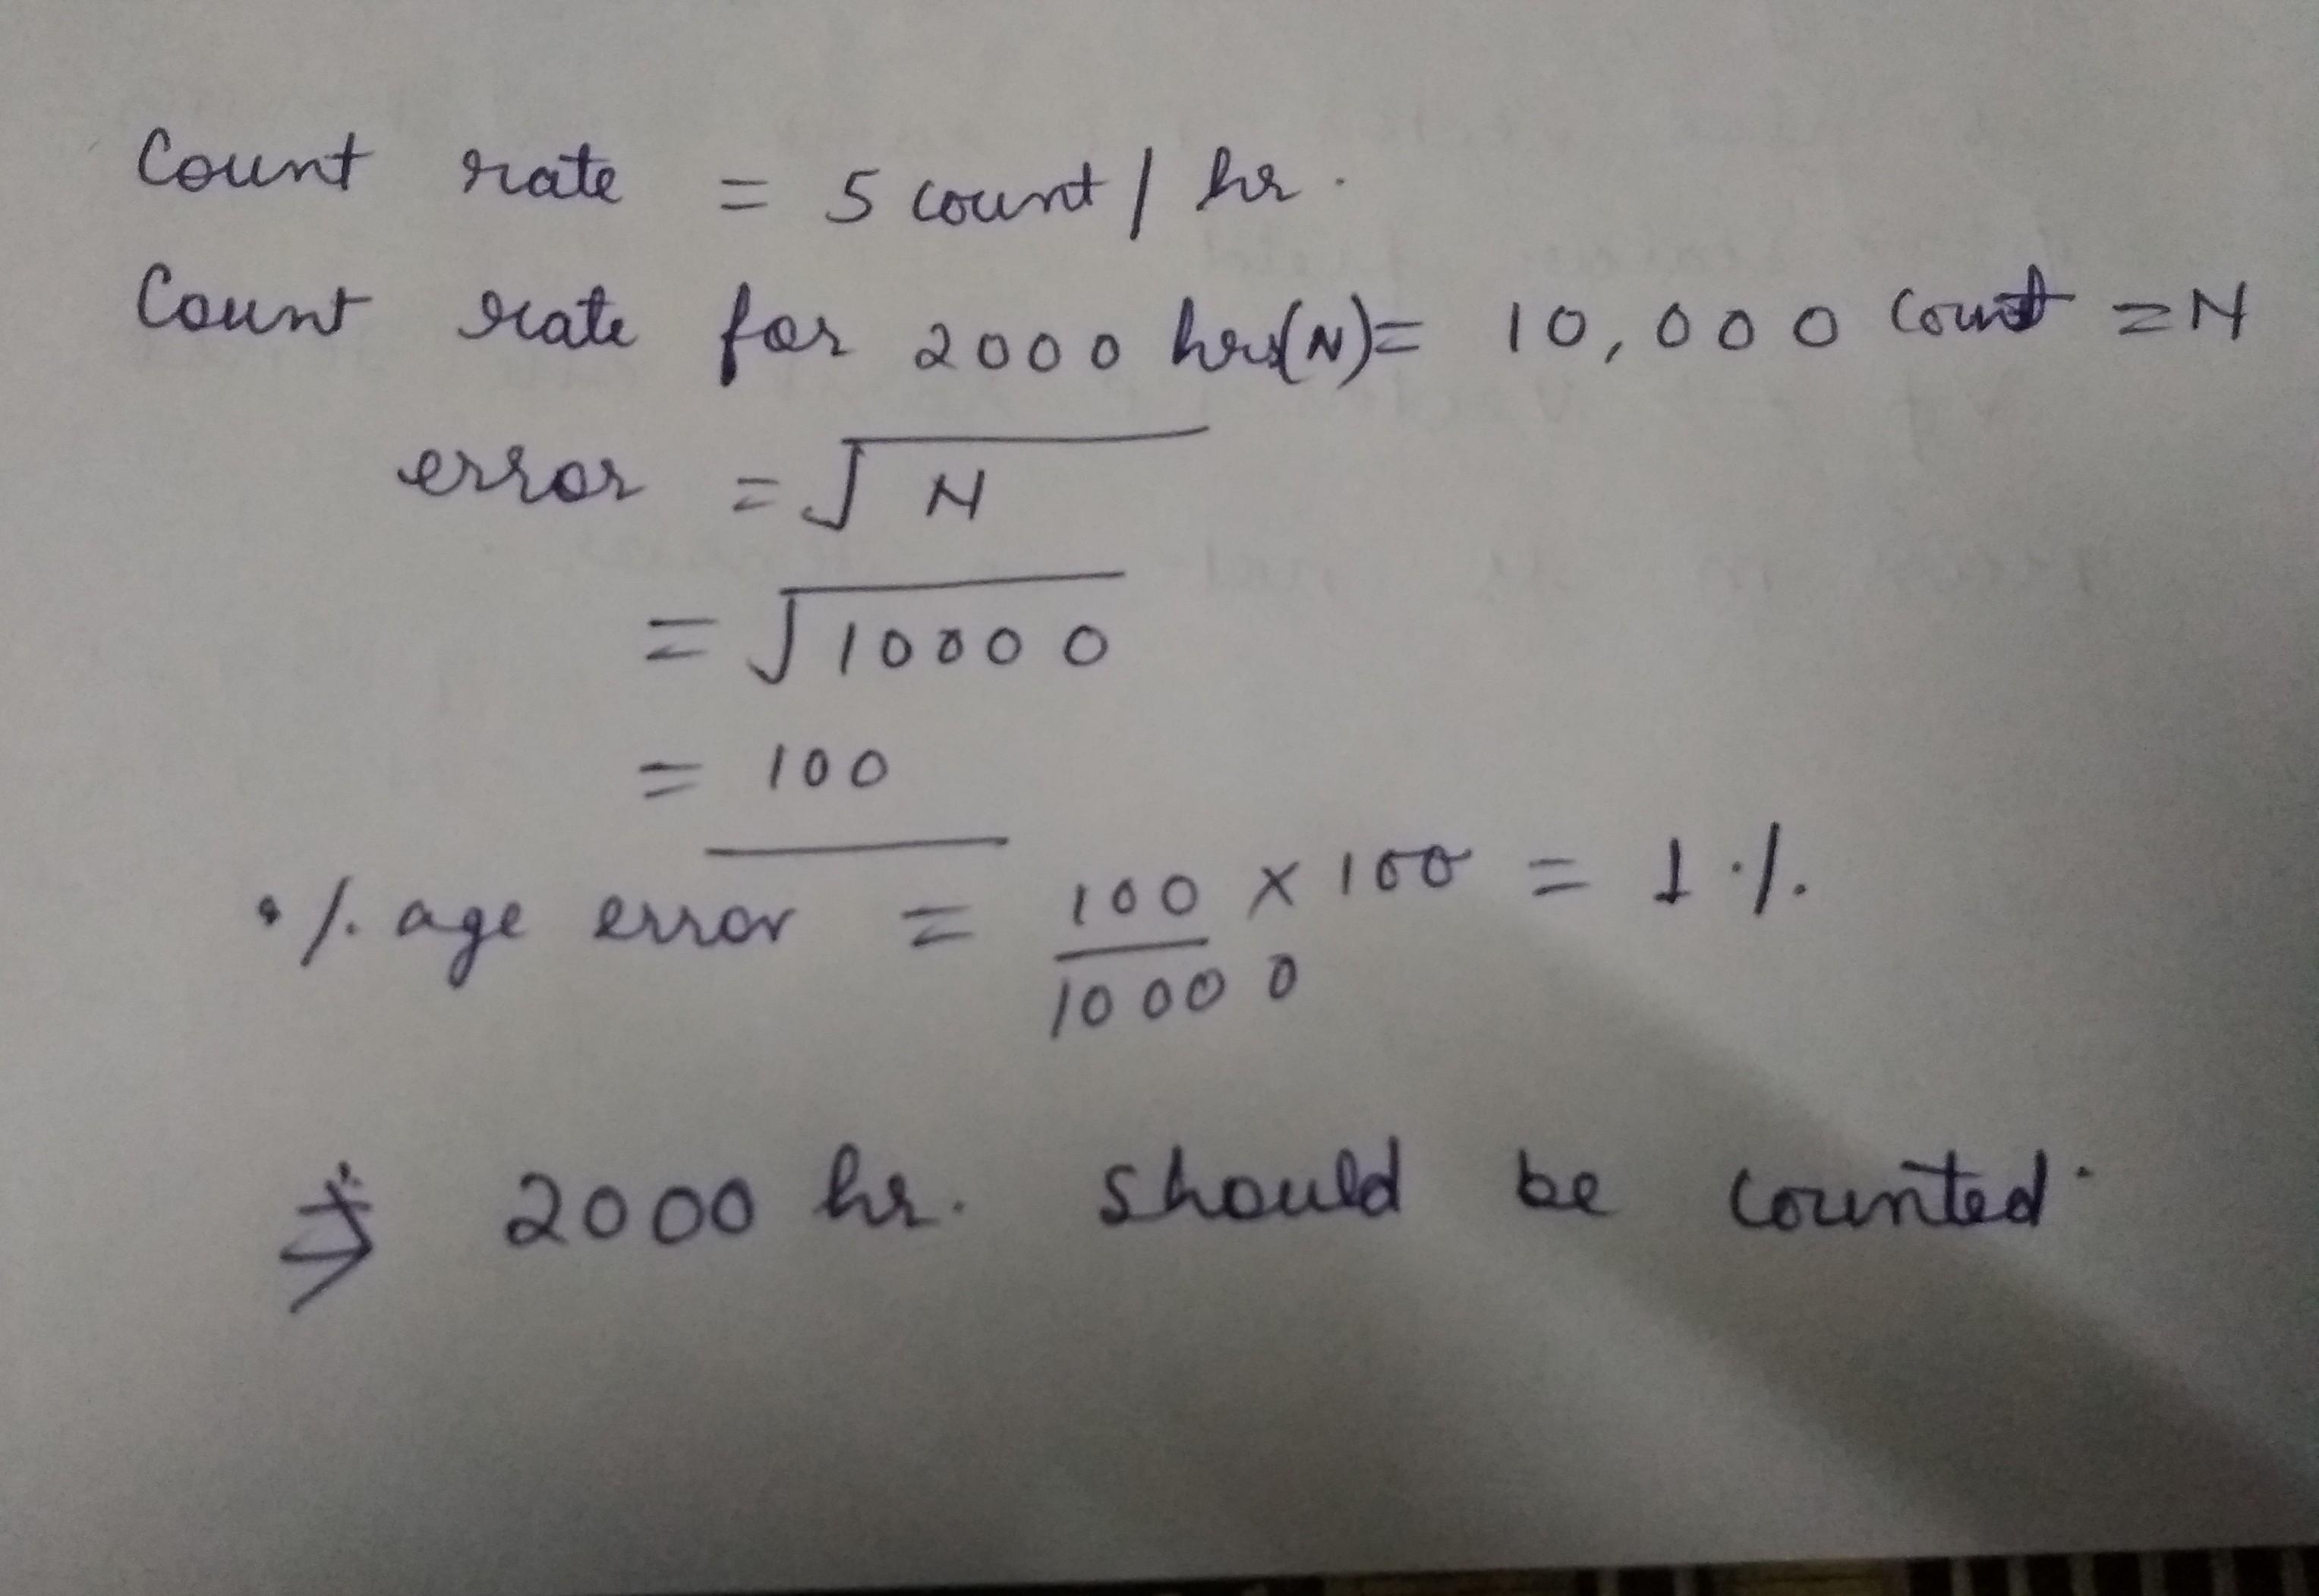 Count rate = 5 count / hr.
Count rate for 2000 hrs(N) = 10,000 Count = N
error = √N
= √10000
= 100
% age error = 100/10000 × 100 = 1 %
⇒ 2000 hr. should be counted.